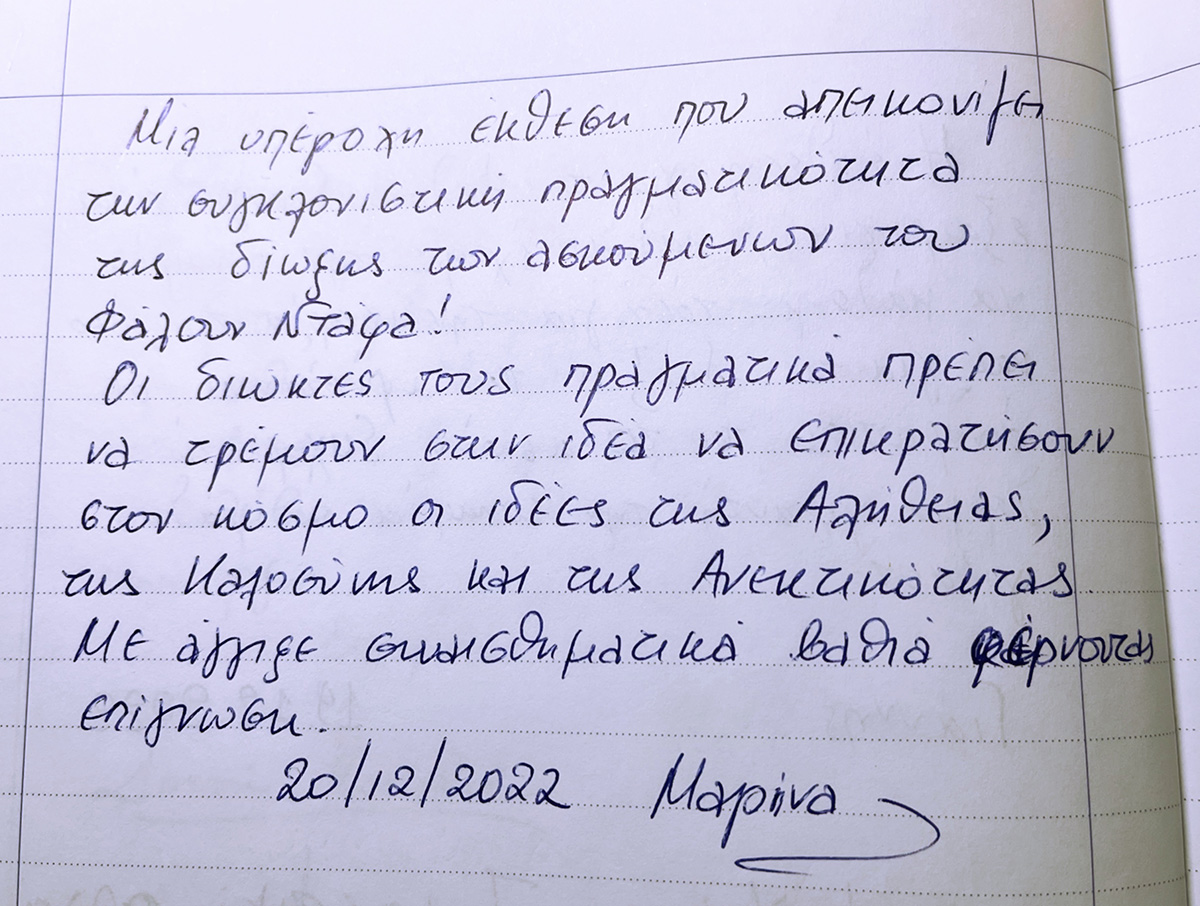 Μια υπέροχη έκθεση που απεικονίζει
την συγκλονιστική πραγματικότητα
της δίωξης των ασκούμενων του
Φάλουν Ντάφα!
Οι διώκτες τους πραγματικά πρέπει
να τρέμουν στην ιδέα να επικρατήσουν
στον κόσμο οι ιδέες της Αλήθειας,
της Καλοσύνης και της Ανεκτικότητας.
Με άγγιξε συναισθηματικά βαθιά φέρνοντας
επίγνωση.
20/12/2022 Μαρίνα